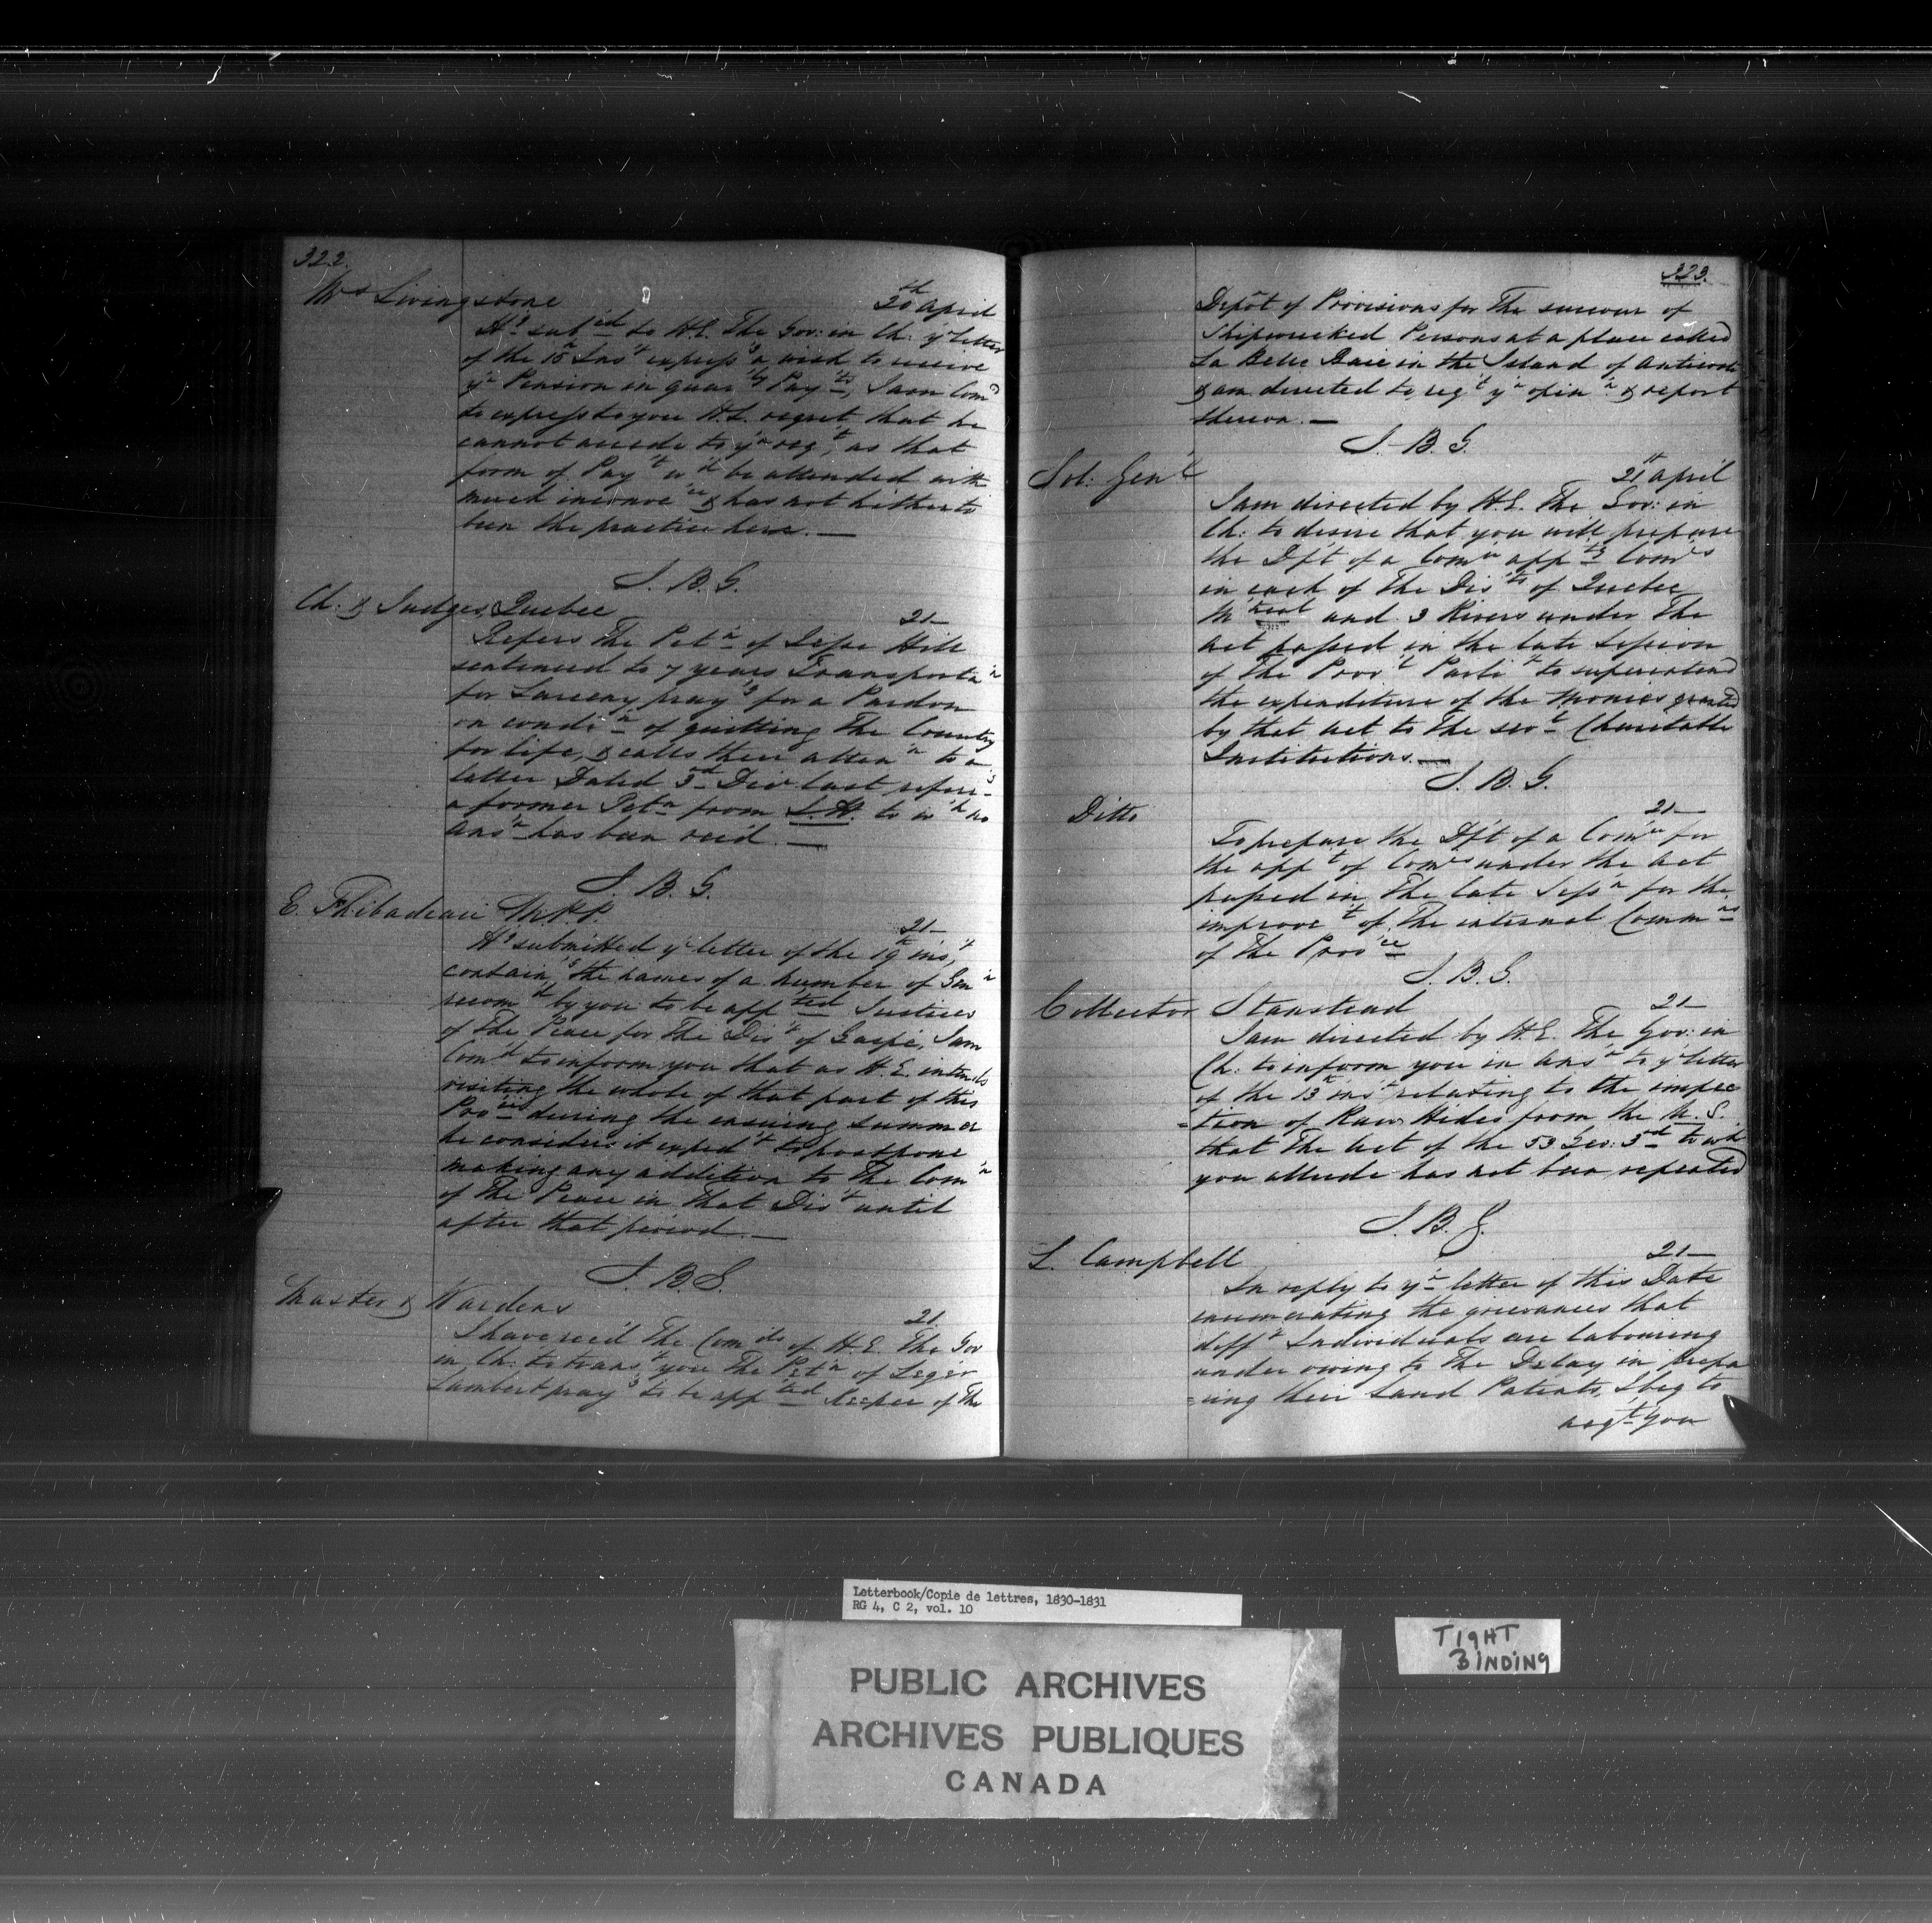 322.
Mrs Livingstone
20th April
Hg submed to H.E. The Gov: in Ch: yr letter
of the 15th Inst expressg a wish to receive
yr Pension in quarly Payts, I am Comd
to express to you H.E. regret that he
cannot accede to yr reqt, as that
form of Payt wd be attended with
much inconvece & has not hitherto
been the practice here. —
J. B. G.
Ch: & Judges, Quebec
21—
Refers The Petn of Jesse Hill
sentenced to 7 years Transportan
for Larceny prayg for a Pardon
on condin of quitting The Country
for life, & calls their attenn to a
letter Dated 3d Decr last referg
a former Petn from J.H. to wh no
ansr has been recd. —
J. B. G.
E. Thibadeau M.P.P.
21—
Hg submitted yr letter of the 19th inst,
containg the names of a number of Gen
recomd by you to be appted Justices
of The Peace for the Dist of Gaspé, I am
Comd to inform you that as H.E. intends
visiting the whole of that part of this
Provce during the ensuing Summer
he considers it expedt to postpone
making any addition to The Comn
of The Peace in that Dist until
after that period. —
J. B. G.
Master & Wardens
21
I have recd The Comds of H.E. The Gov
in Ch: to transt you The Petn of Leger
Lambert prayg to be appted Keeper of The
323.
Depôt of Provisions for The succour of
Shipwrecked Persons at a place called
La Belle Baie in the Island of Anticosti
& am directed to reqt yr opinn & report
thereon. —
J. B. G.
Sol: Genl
21st April
I am directed by H.E. The Gov: in
Ch: to desire that you will prepare
the Dft of a Comn appg Comrs
in each of The Dists of Quebec
Mtreal and 3 Rivers under The
Act passed in the late Session
of The Provl Parlit to superintend
the expenditure of the Monies granted
by that Act to The sevl Charitable
Institutions. —
J. B. G.
Ditto
21—
To prepare the Dft of a Comn for
the appt of Comrs under the Act
passed in The late Sessn for the
improvet of The internal Commns
of the Provce
J. B. G.
Collector Stanstead
21—
I am directed by H.E. The Gov: in
Ch: to inform you in ansr to yr letter
of the 13th inst relating to the inspec
=tion of Raw Hides from the U.S.
that The Act of the 53 Geo: 3rd to wh
you allude has not been repealed
J. B. G.
L. Campbell
21—
In reply to yr letter of this Date
enumerating the grievances that
difft Individuals are labouring
under owing to The Delay in Prepa
=ring their Land Patents, I beg to
reqt you
Letterbook/Copie de lettres, 1830-1831
RG 4, C 2, vol. 10
TIGHT
BINDING
PUBLIC ARCHIVES
ARCHIVES PUBLIQUES
CANADA